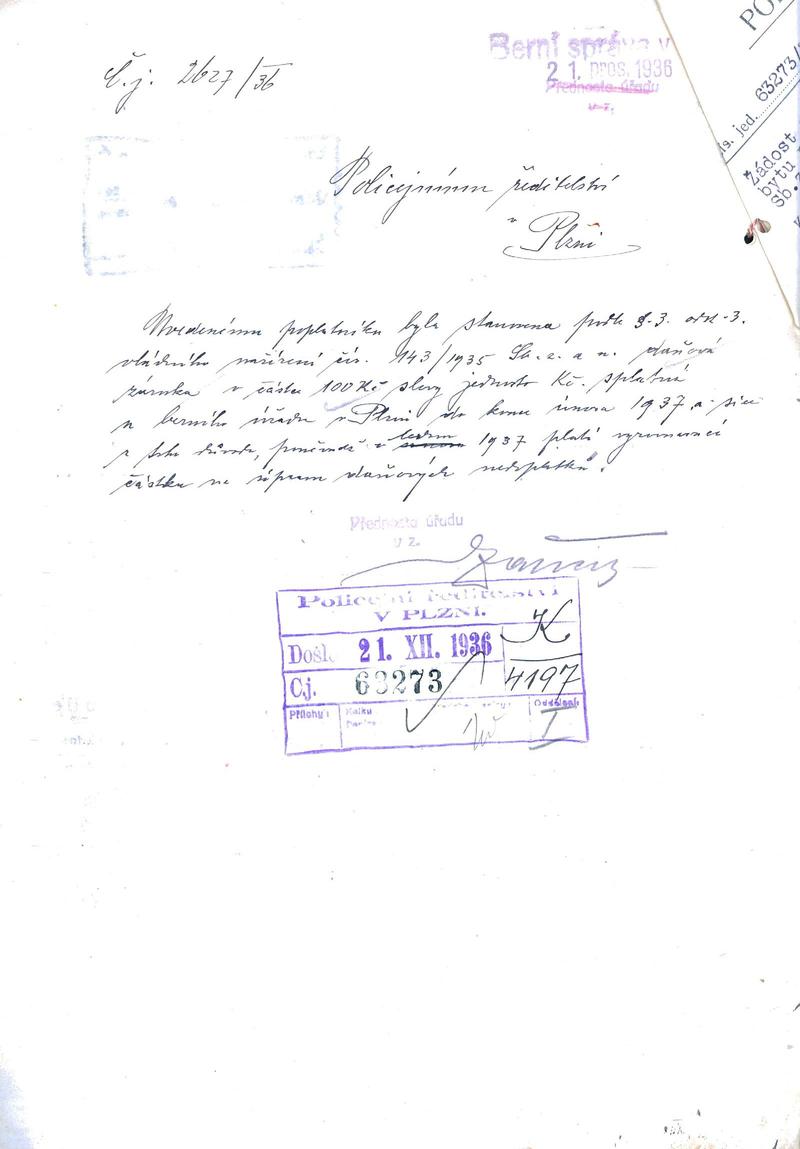 Č.j. 2627/36
Berní správa v
21. pros. 1936
Přednosta úřadu
v z.
PO
is. jed. 63273/
Žádost
bytu
Sb.z
Policejnímu ředitelství
v Plzni
Uvedenému poplatníku byla stanovena podle §-3. odst-3.
vládního nařízení čís. 143/1935 Sb. z. a n. daňová
záruka v částce 100 Kč slovy jednosto Kč. splatná
u berního úřadu v Plzni do konce února 1937 a sice
z toho důvodu, poněvadž v lednu 1937 platí vyrovnací
částku na úpravu daňových nedoplatků.
Přednosta úřadu
v z.
Policejní ředitelství
V PLZNI.
Došl. 21. XII. 1936
K
Čj. 63273
4197
Přílohy:
Kolků
Oddělení:
I